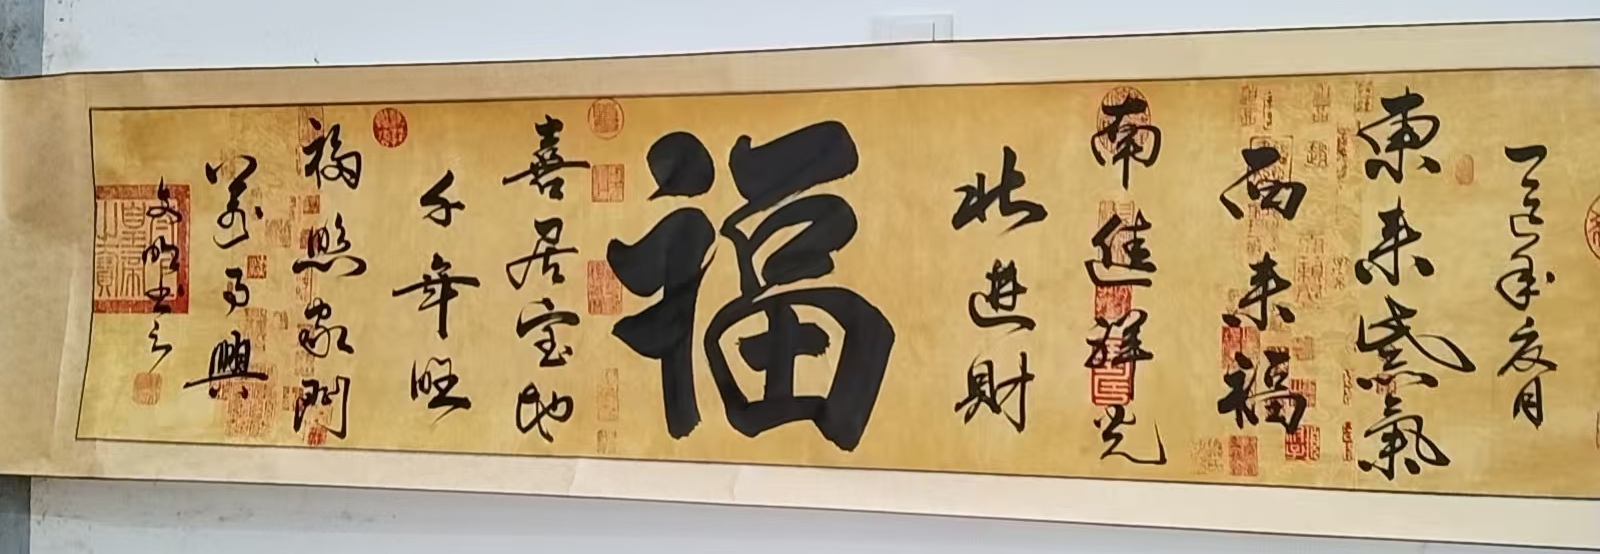 年夏月
東来紫氣
西来福
南進祥光
北進財
福
喜居宝地
千年旺
福照家門
萬事興
文明书